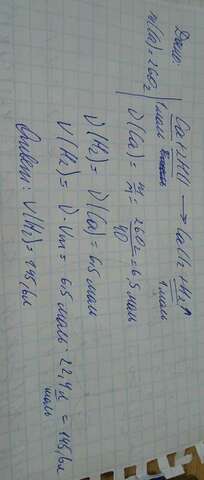 Дано:
m(Ca)=260г
Ca+2HCl → CaCl2+H2↑
1 моль
1 моль
ν(Ca)= m/M = 260г/40 = 6,5 моль
ν(H2)= ν(Ca)= 6,5 моль
V(H2)= ν·Vm= 6,5 моль · 22,4 л/моль = 145,6 л
Ответ: V(H2)= 145,6 л